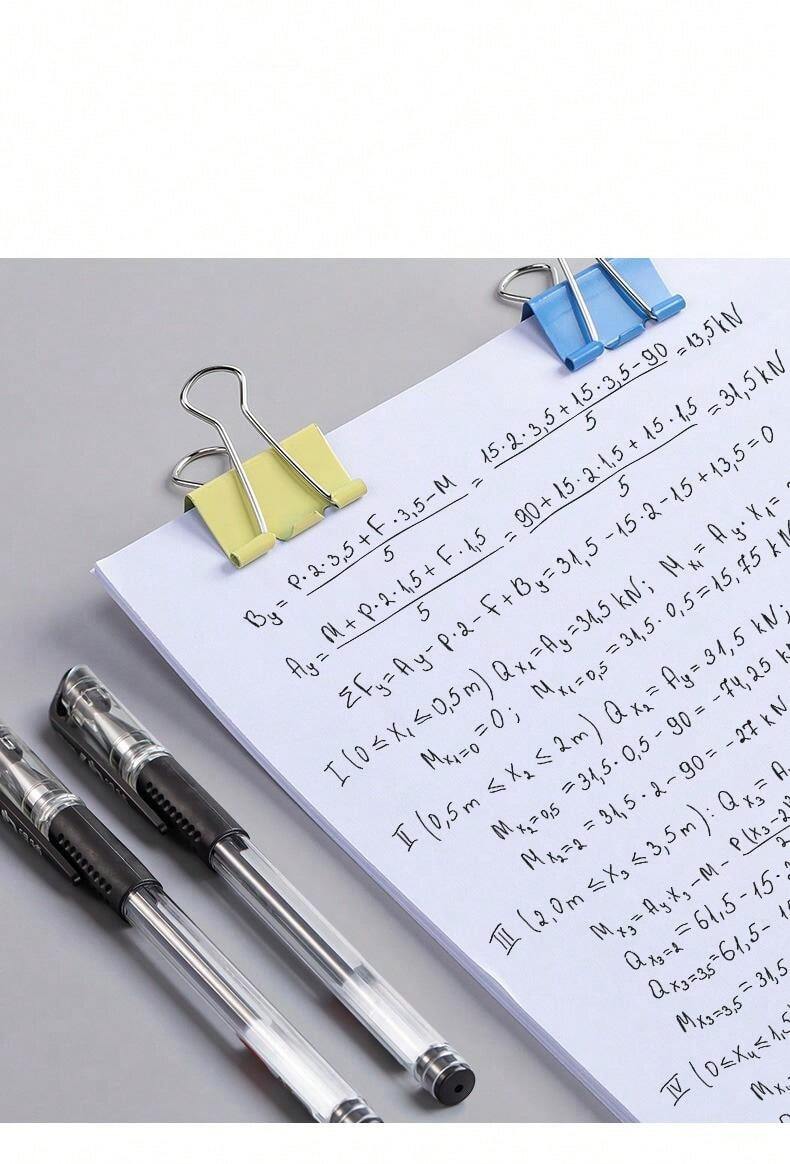 By = (P·2·3,5+F·3,5-M)/5 = (15·2·3,5+15·3,5-90)/5 = 13,5 kN
Ay = (M+P·2·1,5+F·1,5)/5 = (90+15·2·1,5+15·1,5)/5 = 31,5 kN
ΣFy=Ay-P·2-F+By=31,5-15·2-15+13,5=0
I (0≤X₁≤0,5m) Qx₁=Ay=31,5 kN; Mx₁=Ay·X₁=
Mx₁=0=0; Mx₁=0,5=31,5·0,5=15,75 k
II (0,5m≤X₂≤2m) Qx₂=Ay=31,5 kN;
Mx₂=0,5=31,5·0,5-90=-74,25 k
Mx₂=2=31,5·2-90=-27 kN
III (2,0m≤X₃≤3,5m): Qx₃=A
Mx₃=AyX₃-M-P(X₃-2)
Qx₃=2=61,5-15·2
Qx₃=3,5=61,5-1
Mx₃=3,5=31,5
IV (0≤X₄≤1,5
Mx₄